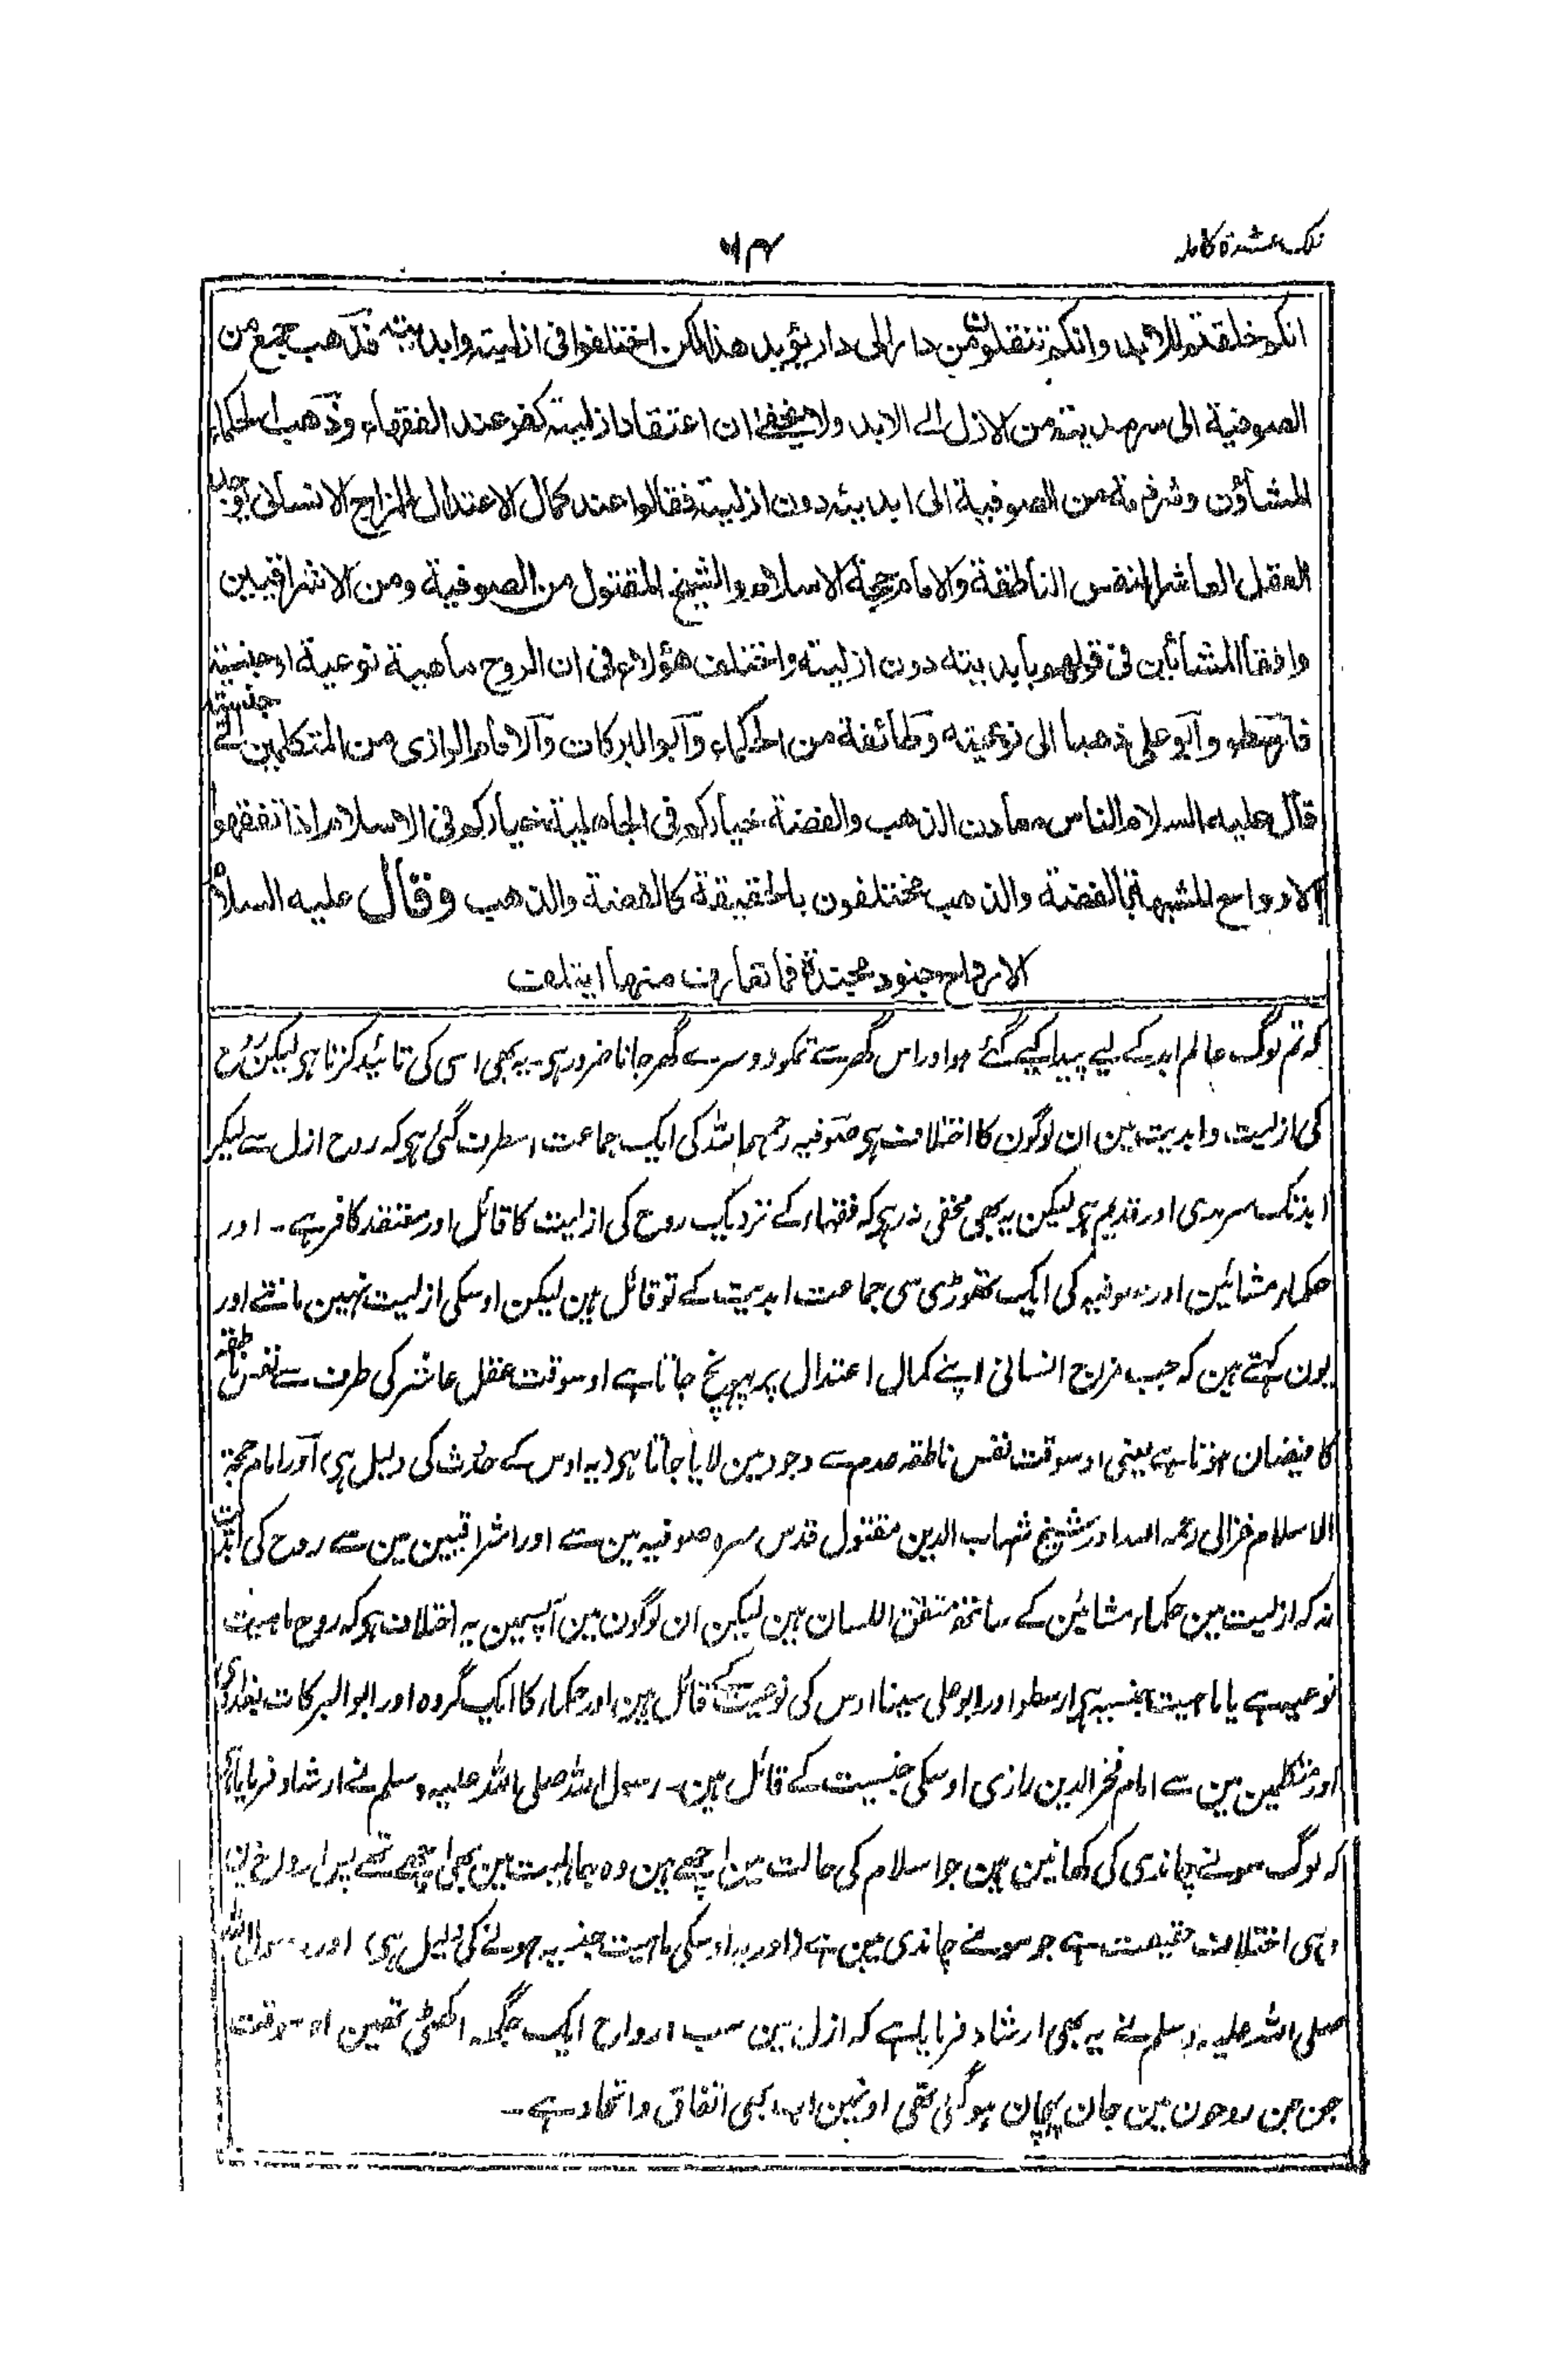 تلک عشرة کاملہ
۶۴
انکم خلقتم للابد وانکم تنتقلون من دار الی دار یؤید هذا لکن اختلفوا فی ازلیته وابدیته فذهب جمع من
الصوفیة الی سرمدیته من الازل الی الابد ولا یخفی ان اعتقاد ازلیته کفر عند الفقهاء وذهب الحکماء
المشاؤن وشرذمة من الصوفیة الی ابدیته دون ازلیته فقالوا عند کمال الاعتدال المزاج الانسانی
العقل العاشر النفس الناطقة والامام حجة الاسلام والشیخ المقتول من الصوفیة ومن الاشراقیین
وافقا المشائین فی قولهم بابدیته دون ازلیته واختلف هؤلاء فی ان الروح ماهیة نوعیة او جنسیة
فارسطو وابو علی ذهبا الی نوعیته وطائفة من الحکماء وابو البرکات والامام الرازی من المتکلمین الی جنسیته
قال علیه السلام الناس معادن الذهب والفضة خیارکم فی الجاهلیة خیارکم فی الاسلام اذا تفقهوا
الارواح المشبهة بالفضة والذهب مختلفون بالحقیقة کالفضة والذهب وقال علیه السلام
الارواح جنود مجندة فما تعارف منها ایتلف
کہ تم لوگ عالم ابد کے لیے پیدا کیے گئے ہو اور اس گھر سے تمکو دوسرے گھر جانا ضرور ہی ۔ یہ بھی اسی کی تائید کرتا ہی لیکن روح
کی ازلیت وابدیت مین ان لوگون کا اختلاف ہی صوفیہ رحمہما للہ کی ایک جماعت اسطرف گئی ہی کہ روح ازل سے لیکر
ابد تک سرمدی اور قدیم ہی لیکن یہ بھی مخفی نہ رہی کہ فقہاء کے نزدیک روح کی ازلیت کا قائل اور معتقد کافر ہے ۔ اور
حکماء مشائین اور صوفیہ کی ایک تھوڑی سی جماعت ابدیت کے تو قائل ہین لیکن اوسکی ازلیت نہین مانتے اور
یون کہتے ہین کہ جب مزاج انسانی اپنے کمال اعتدال پر پہونچ جاتا ہے اوسوقت عقل عاشر کی طرف سے نفس ناطقہ
کا فیضان ہوتا ہے یعنی اوسوقت نفس ناطقہ عدم سے وجود مین لایا جاتا ہی (یہ اوس کے حدوث کی دلیل ہی) اور امام حجۃ
الاسلام غزالی رحمہ اللہ اور شیخ شہاب الدین مقتول قدس سرہ صوفیہ مین سے اور اشراقیین مین سے روح کی ابدیت
نہ کہ ازلیت مین حکماء مشائین کے ساتھ متفق اللسان ہین لیکن ان لوگون مین آپسمین یہ اختلاف ہی کہ روح ماہیت
نوعیہ ہے یا ماہیت جنسیہ ہی ارسطو اور ابو علی سینا اوس کی نوعیت کے قائل ہین اور حکماء کا ایک گروہ اور ابو البرکات بغدادی
اور متکلمین مین سے امام فخر الدین رازی اوسکی جنسیت کے قائل ہین ۔ رسول اللہ صلی اللہ علیہ وسلم نے ارشاد فرمایا ہی
کہ لوگ سونے چاندی کی کھانین ہین جو اسلام کی حالت مین اچھے ہین وہ جاہلیت مین بھی اچھے تھے پس ارواح مین
وہی اختلاف حقیقت ہے جو سونے چاندی مین ہے (اور یہ اوسکی ماہیت جنسیہ ہونے کی دلیل ہی) اور رسول اللہ
صلی اللہ علیہ وسلم نے یہ بھی ارشاد فرمایا ہے کہ ازل مین سب ارواح ایک جگہ اکھٹی تھین اوسوقت
جن جن روحون مین جان پہچان ہو گئی تھی اونہین اب بھی اتفاق واتحاد ہے ۔